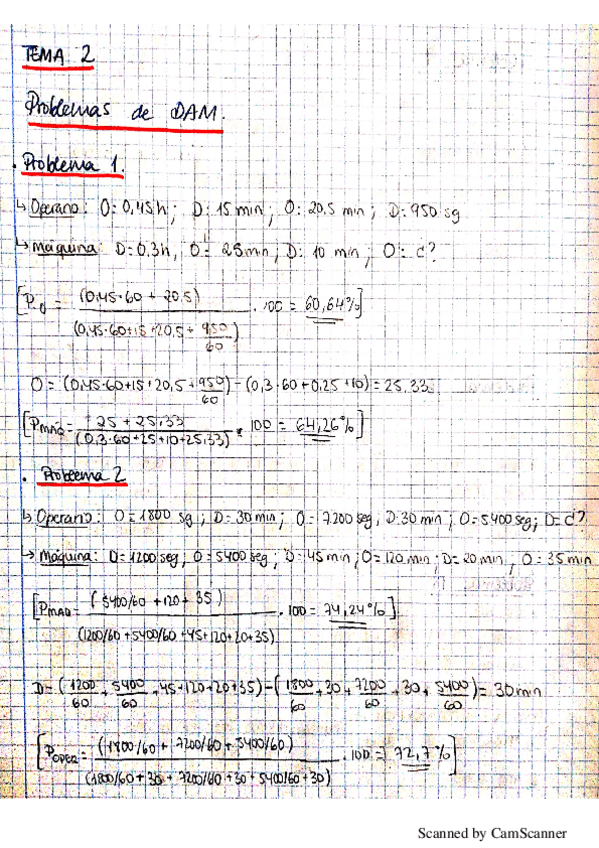 TEMA 2
Problemas de DAM.
. Problema 1.
↳ Operario: O: 0,45h ; D: 15 min ; O: 20,5 min ; D: 950 sg
↳ Máquina: D=0.3h, O= 25min ; D: 10 min ; O: c?
[P_O = (0,45·60 + 20,5) / (0,45·60+15+20,5+ 950/60) · 100 = 60,64%]
O = (0,45·60+15+20,5+ 950/60) - (0,3·60+0,25+10) = 25.33
[PMÁQ = 25 + 25.33 / (0.3·60+25+10+25.33) · 100 = 64,26%]
. Problema 2
↳ Operario: O=1800 sg ; D=30min ; O=7200 seg, D:30 min ; O=5400seg ; D=c?
↳ Máquina: D=1200seg, O=5400seg ; D:45min ; O=120min ; D=20min, O=35min
[PMAQ = (5400/60 +120+35) / (1200/60 +5400/60 +45+120+20+35) · 100 = 74,24%]
D=(1200/60 + 5400/60 +45+120+20+35)-(1800/60 +30+ 7200/60 +30+ 5400/60)= 30min
[POPER= (1800/60 + 7200/60 + 5400/60) / (1800/60+30+7200/60+30+5400/60+30) · 100 = 72,7%]
Scanned by CamScanner